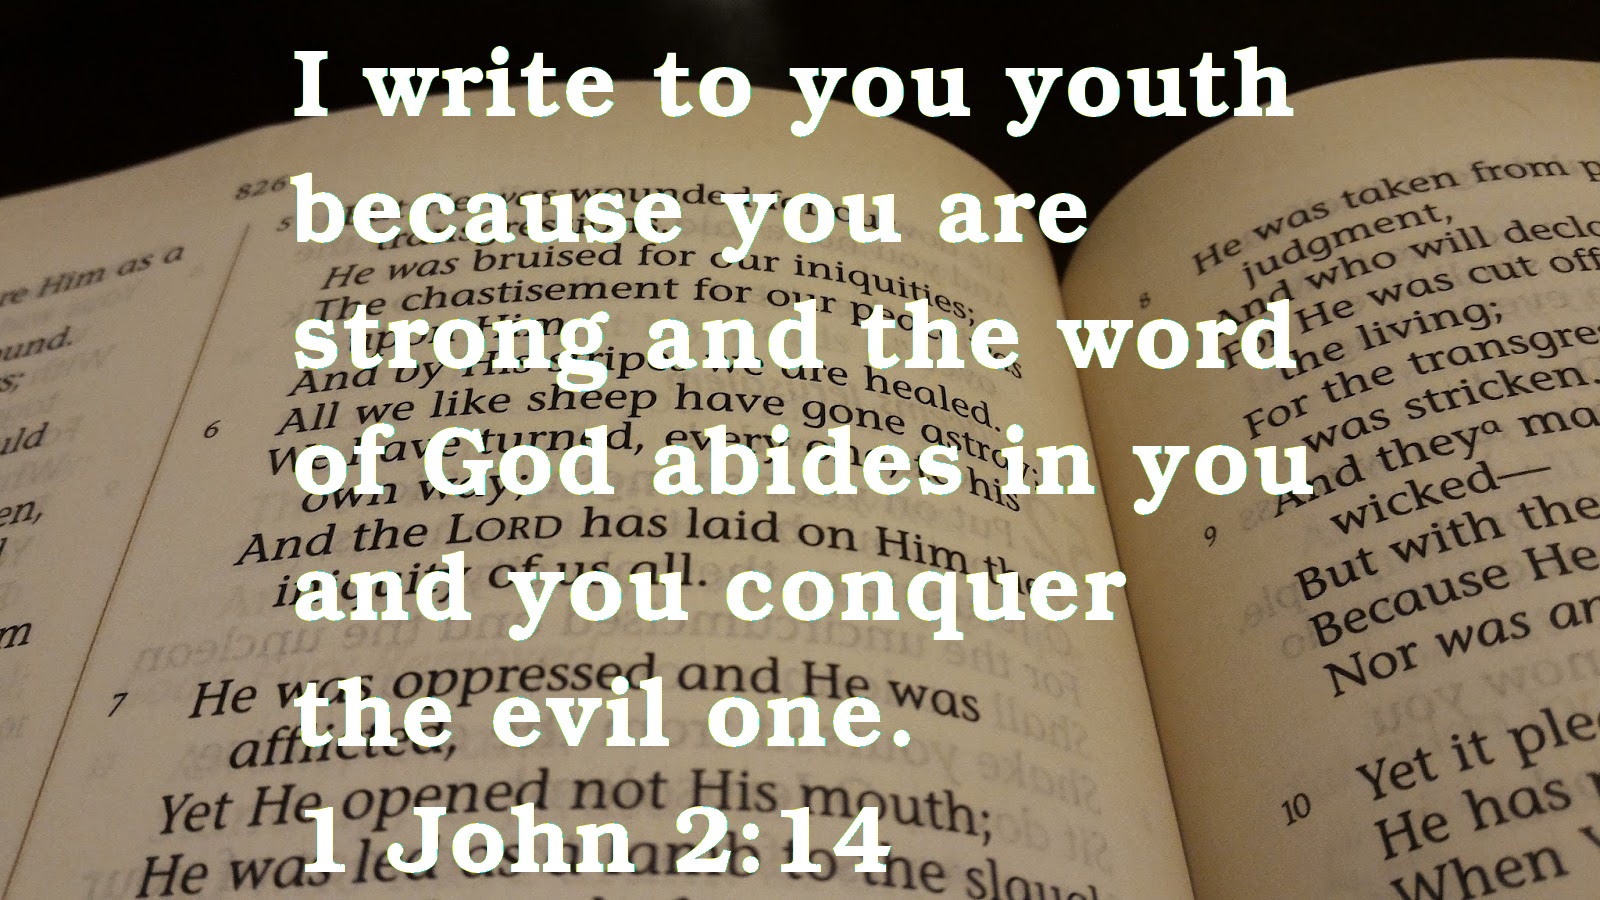 I write to you youth
because you are
strong and the word
of God abides in you
and you conquer
the evil one.
1 John 2:14
826
re Him as a
ound.
s;
uld
en,
m
5 He was wounded for our
transgressions,
He was bruised for our iniquities;
The chastisement for our peace was
upon Him,
And by His stripes we are healed.
6 All we like sheep have gone astray;
We have turned, every one, to his
own way;
And the LORD has laid on Him the
iniquity of us all.
7 He was oppressed and He was
afflicted,
Yet He opened not His mouth;
He was led as a lamb to the slaugh
He was taken from p
judgment,
8 And who will decla
For He was cut off
the living;
For the transgre
was stricken.
9 And theyᵃ ma
wicked—
But with the
Because He
Nor was an
10 Yet it plea
He has
When